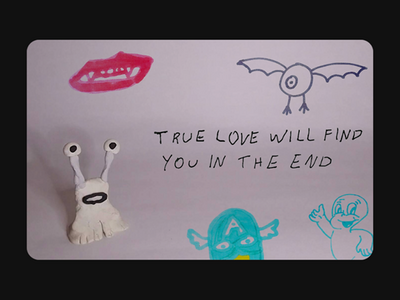 A
TRUE LOVE WILL FIND
YOU IN THE END